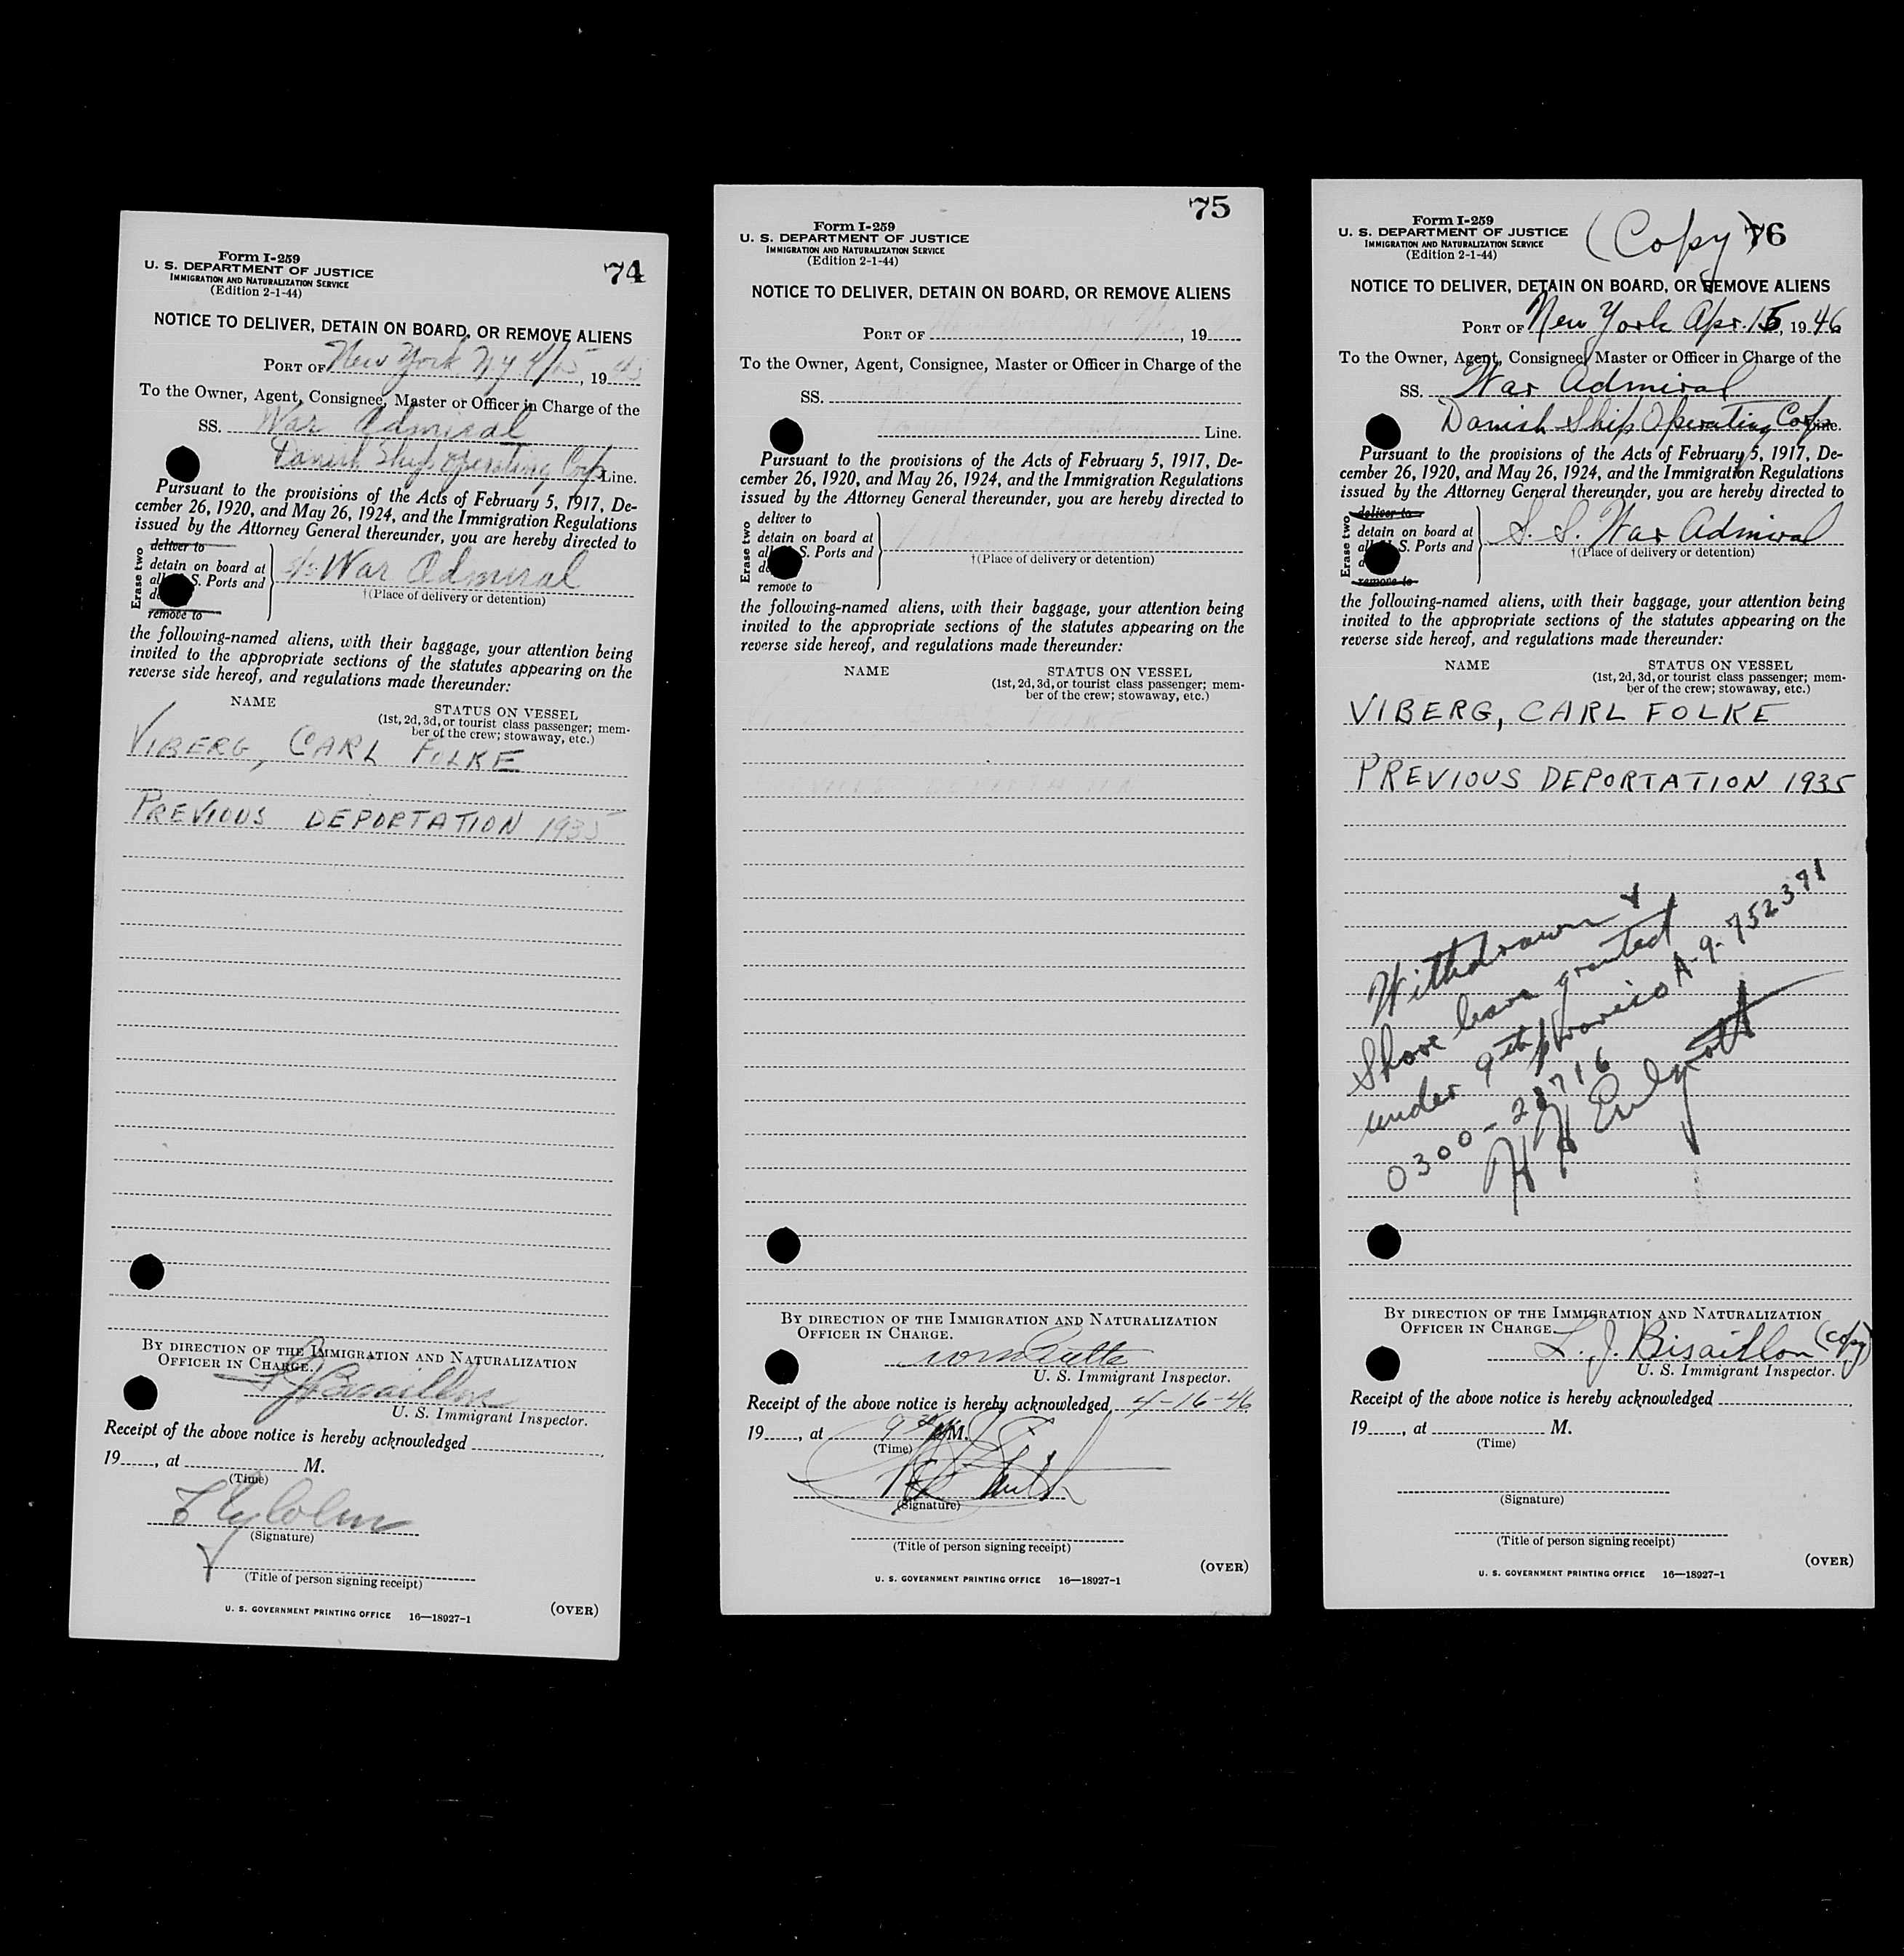 74
Form I-259
U. S. DEPARTMENT OF JUSTICE
IMMIGRATION AND NATURALIZATION SERVICE
(Edition 2-1-44)
NOTICE TO DELIVER, DETAIN ON BOARD, OR REMOVE ALIENS
PORT OF New York N.Y. 4/15, 19
To the Owner, Agent, Consignee, Master or Officer in Charge of the
SS. War Admiral
Danish Ship Operating Corp Line.
Pursuant to the provisions of the Acts of February 5, 1917, De-
cember 26, 1920, and May 26, 1924, and the Immigration Regulations
issued by the Attorney General thereunder, you are hereby directed to
Erase two
deliver to
detain on board at
all S. Ports and
remove to
War Admiral
†(Place of delivery or detention)
the following-named aliens, with their baggage, your attention being
invited to the appropriate sections of the statutes appearing on the
reverse side hereof, and regulations made thereunder:
NAME
STATUS ON VESSEL
(1st, 2d, 3d, or tourist class passenger; mem-
ber of the crew; stowaway, etc.)
VIBERG, CARL FOLKE
PREVIOUS DEPORTATION 1935
BY DIRECTION OF THE IMMIGRATION AND NATURALIZATION
OFFICER IN CHARGE.
L J Bisaillon
U. S. Immigrant Inspector.
Receipt of the above notice is hereby acknowledged
19, at M.
(Time)
(Signature)
(Title of person signing receipt)
(OVER)
U. S. GOVERNMENT PRINTING OFFICE 16—18927-1
75
Form I-259
U. S. DEPARTMENT OF JUSTICE
IMMIGRATION AND NATURALIZATION SERVICE
(Edition 2-1-44)
NOTICE TO DELIVER, DETAIN ON BOARD, OR REMOVE ALIENS
PORT OF , 19
To the Owner, Agent, Consignee, Master or Officer in Charge of the
SS.
Line.
Pursuant to the provisions of the Acts of February 5, 1917, De-
cember 26, 1920, and May 26, 1924, and the Immigration Regulations
issued by the Attorney General thereunder, you are hereby directed to
Erase two
deliver to
detain on board at
all S. Ports and
remove to
†(Place of delivery or detention)
the following-named aliens, with their baggage, your attention being
invited to the appropriate sections of the statutes appearing on the
reverse side hereof, and regulations made thereunder:
NAME
STATUS ON VESSEL
(1st, 2d, 3d, or tourist class passenger; mem-
ber of the crew; stowaway, etc.)
BY DIRECTION OF THE IMMIGRATION AND NATURALIZATION
OFFICER IN CHARGE.
U. S. Immigrant Inspector.
Receipt of the above notice is hereby acknowledged 4-16-46
19, at 9 30 M.
(Time)
(Signature)
(Title of person signing receipt)
(OVER)
U. S. GOVERNMENT PRINTING OFFICE 16—18927-1
(Copy) 76
Form I-259
U. S. DEPARTMENT OF JUSTICE
IMMIGRATION AND NATURALIZATION SERVICE
(Edition 2-1-44)
NOTICE TO DELIVER, DETAIN ON BOARD, OR REMOVE ALIENS
PORT OF New York Apr. 15, 1946
To the Owner, Agent, Consignee, Master or Officer in Charge of the
SS. War Admiral
Danish Ship Operating Corp Line.
Pursuant to the provisions of the Acts of February 5, 1917, De-
cember 26, 1920, and May 26, 1924, and the Immigration Regulations
issued by the Attorney General thereunder, you are hereby directed to
Erase two
deliver to
detain on board at
all S. Ports and
remove to
S. S. War Admiral
†(Place of delivery or detention)
the following-named aliens, with their baggage, your attention being
invited to the appropriate sections of the statutes appearing on the
reverse side hereof, and regulations made thereunder:
NAME
STATUS ON VESSEL
(1st, 2d, 3d, or tourist class passenger; mem-
ber of the crew; stowaway, etc.)
VIBERG, CARL FOLKE
PREVIOUS DEPORTATION 1935
Withdrawn &
Shore leave granted
under 9th proviso A-9-752371
0300-28716
BY DIRECTION OF THE IMMIGRATION AND NATURALIZATION
OFFICER IN CHARGE.
L. J. Bisaillon (copy)
U. S. Immigrant Inspector.
Receipt of the above notice is hereby acknowledged
19, at M.
(Time)
(Signature)
(Title of person signing receipt)
(OVER)
U. S. GOVERNMENT PRINTING OFFICE 16—18927-1